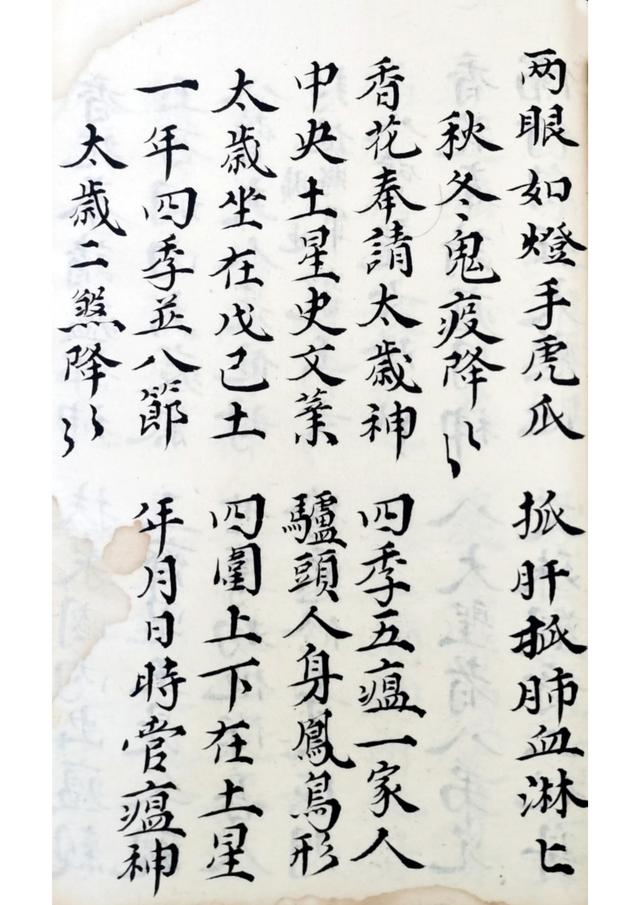 两眼如燈手虎瓜 抓肝抓肺血淋匕
秋冬鬼疫降〻
香花奉請太歲神 四季五瘟一家人
中央土星史文業 驢頭人身鳳鳥形
太歲坐在戊己土 四圍上下在土星
一年四季並八節 年月日時管瘟神
太歲二煞降〻